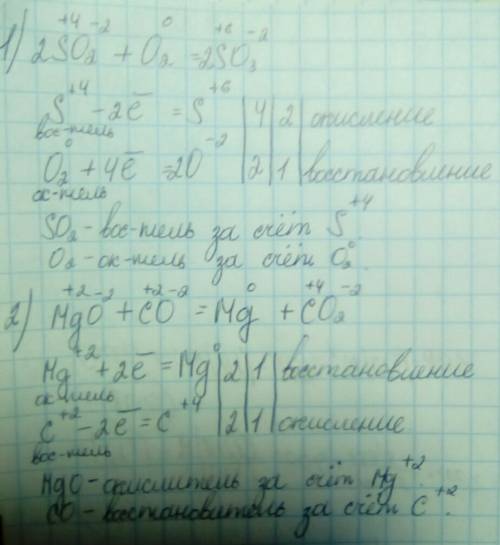 +4 -2 0 +6 -2
1) 2SO₂ + O₂ = 2SO₃
S⁺⁴ - 2ē = S⁺⁶ | 4 | 2 | окисление
вос-тель
O₂⁰ + 4ē = 2O⁻² | 2 | 1 | восстановление
ок-тель
SO₂ - вос-тель за счёт S⁺⁴
O₂ - ок-тель за счёт O₂⁰.
+2 -2 +2 -2 0 +4 -2
2) MgO + CO = Mg + CO₂
Mg⁺² + 2ē = Mg⁰ | 2 | 1 | восстановление
ок-тель
C⁺² - 2ē = C⁺⁴ | 2 | 1 | окисление
вос-тель
MgO - окислитель за счёт Mg⁺².
CO - восстановитель за счёт C⁺².